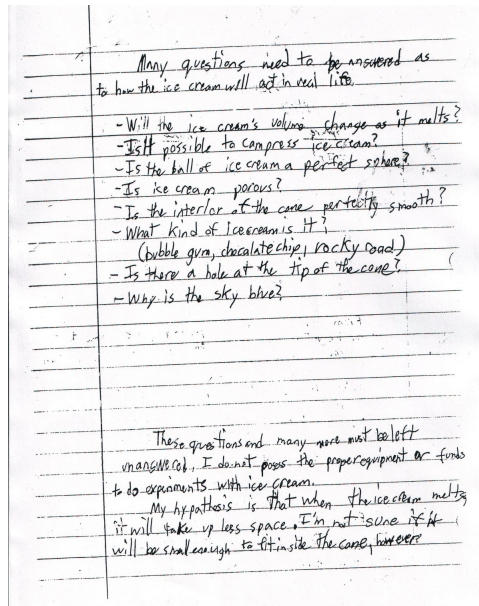 Many questions need to be answered as
to how the ice cream will act in real life.
- Will the ice cream's volume change as it melts?
- Is it possible to compress ice cream?
- Is the ball of ice cream a perfect sphere?
- Is ice cream porous?
- Is the interior of the cone perfectly smooth?
- What kind of Icecream is it?
(bubble gum, chocalate chip, rocky road)
- Is there a hole at the tip of the cone?
- Why is the sky blue?
These questions and many more must be left
unanswered. I do not posess the proper equipment or funds
to do expiriments with ice cream.
My hypothosis is that when the ice cream melts,
it will take up less space. I'm not sure if it
will be small enough to fit inside the cone, however.